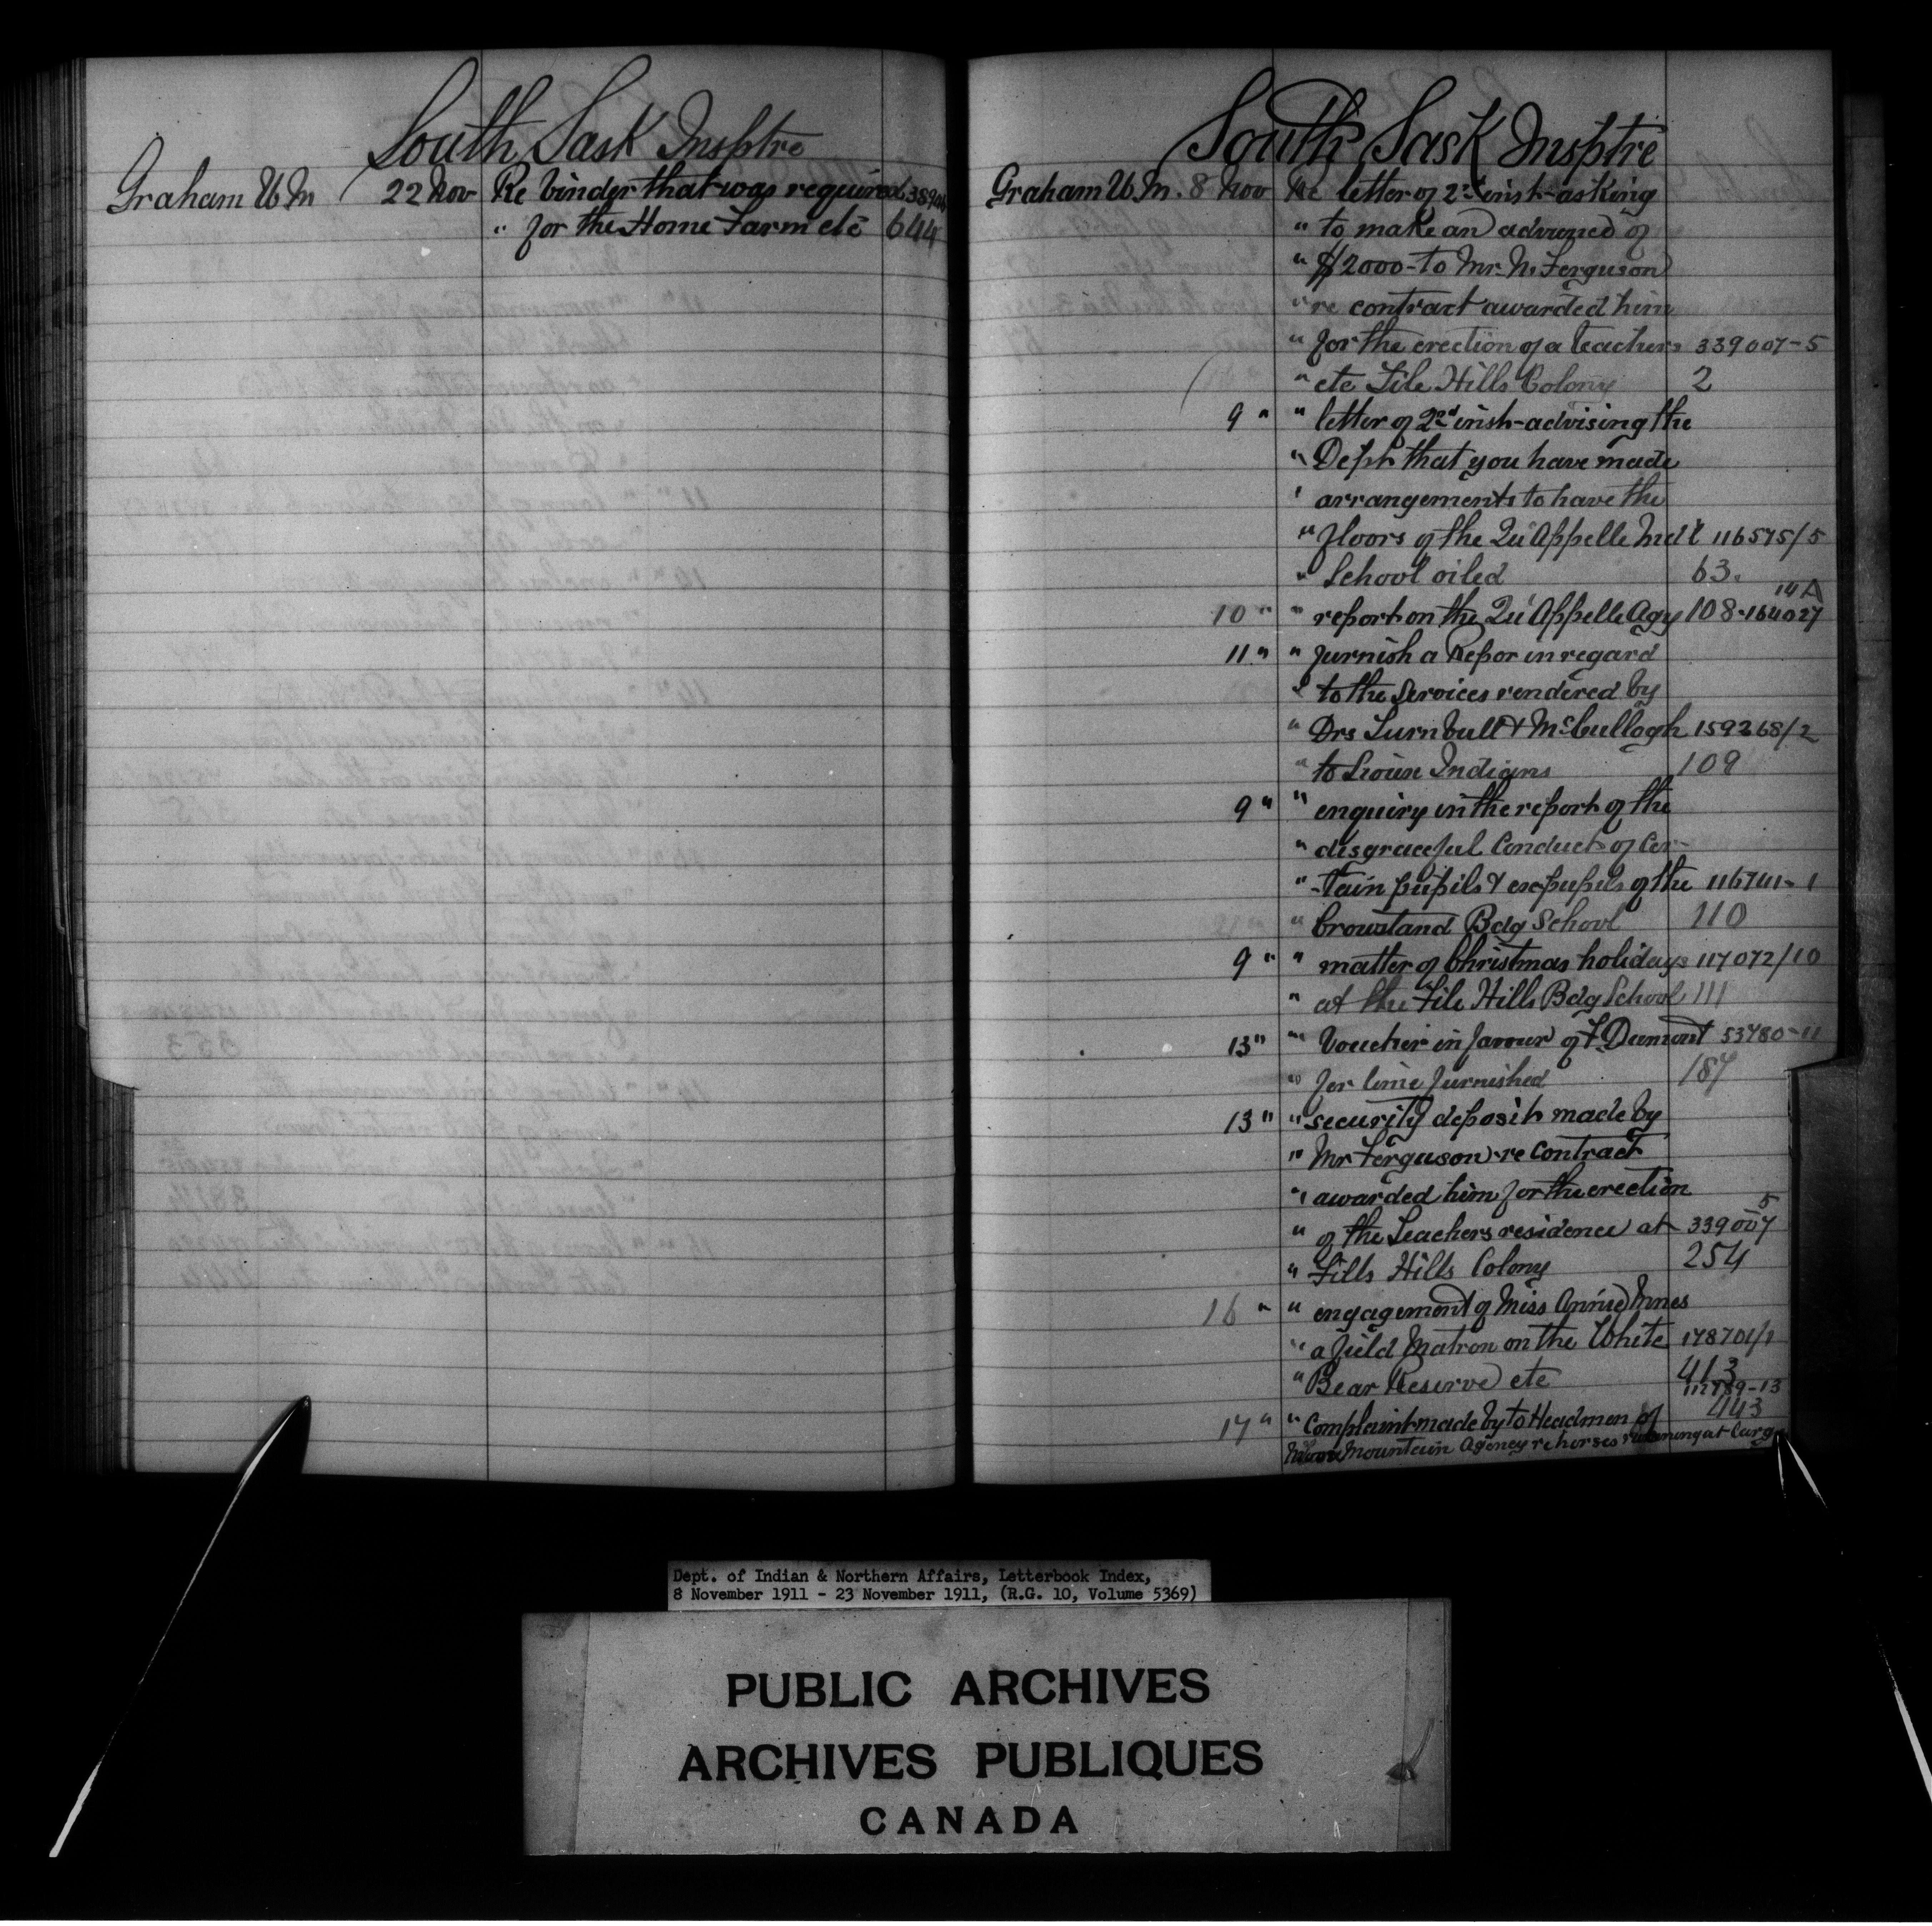 South Sask Insptre
Graham W M 22 Nov Re binder that was required 38940
" for the Home Farm etc 644
South Sask Insptre
Graham W. M. 8 Nov Re letter of 2nd inst-asking
" to make an advanced of
" $2000- to Mr. N. Ferguson
" re contract awarded him
" for the erection of a teachers 339007-5
" etc File Hills Colony 2
9 " " letter of 2nd inst-advising the
" Dept that you have made
" arrangements to have the
" floors of the Qu'Appelle Indl 116575/5
" School oiled 63.
14A
10 " " report on the Qu'Appelle Agy 108-164027
11 " " furnish a Repor in regard
" to the Services rendered by
" Drs Turnbull & McCullogh 159268/2
" to Sioux Indians 109
9 " " enquiry in the report of the
" disgraceful Conduct of Cer-
" -tain pupils & expupils of the 116741-1
" Crowstand Bdg School 110
9 " " matter of Christmas holidays 117072/10
" at the File Hills Bdg School 111
13 " " Voucher in favour of F. Dumont 53780-11
" for lime furnished 187
13 " " security deposit made by
" Mr Ferguson re Contract
" awarded him for the erection
" of the Teachers residence at 339007 5
" Fills Hills Colony 254
16 " " engagement of Miss Annie Innes
" a field Matron on the White 178701/1
" Bear Reserve etc 413
112789-13
17 " " Complaint made by to Headmen of 443
Moose Mountain Agency re horses running at Large
Dept. of Indian & Northern Affairs, Letterbook Index,
8 November 1911 - 23 November 1911, (R.G. 10, Volume 5369)
PUBLIC ARCHIVES
ARCHIVES PUBLIQUES
CANADA